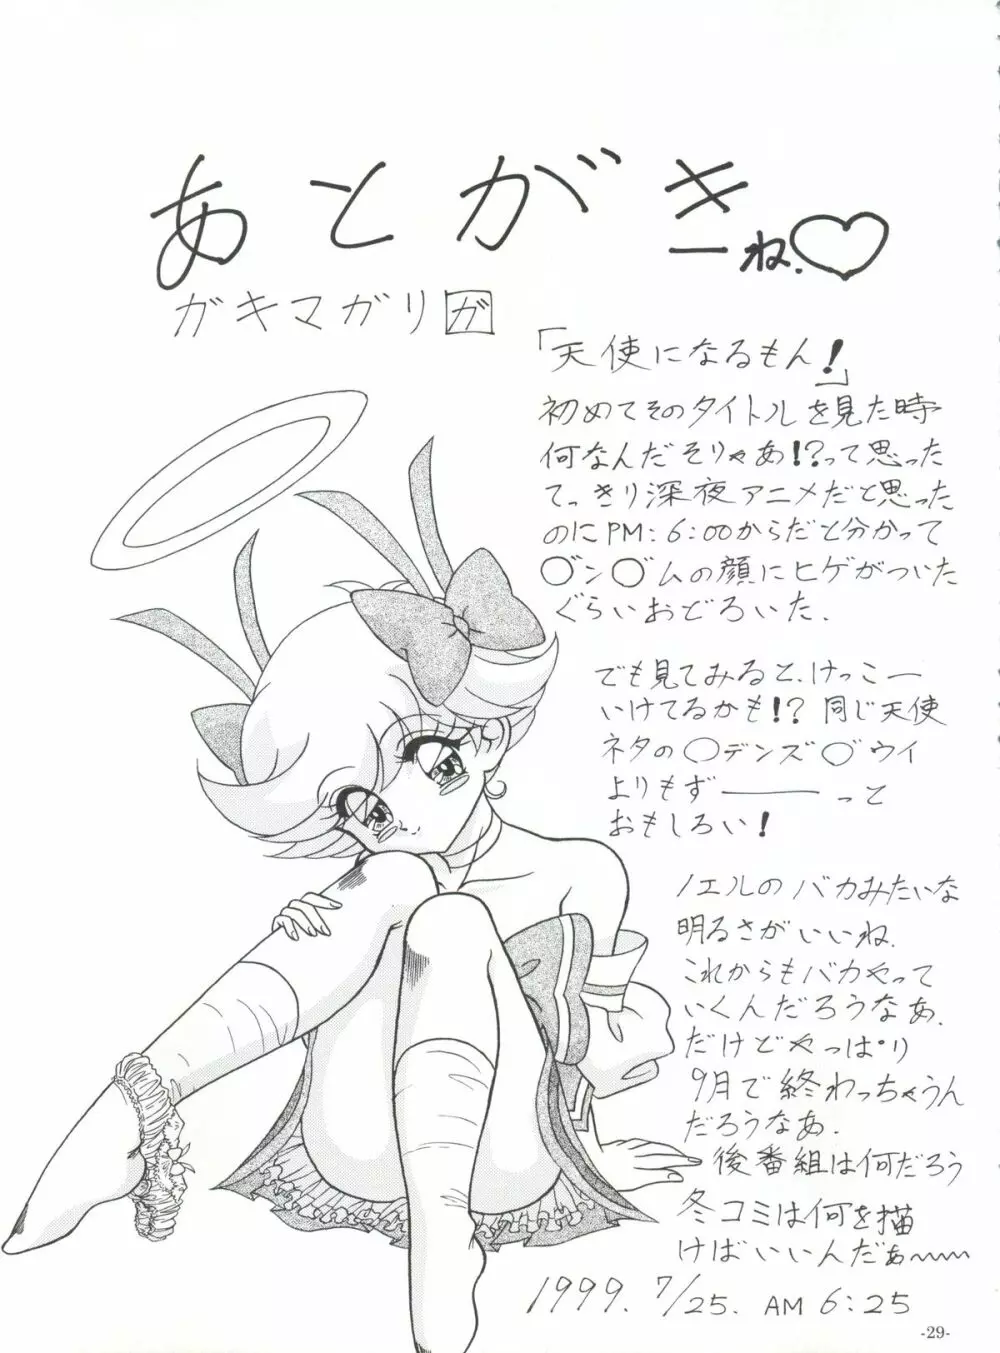 あとがき
ーね.♡
ガキマガリガ
「天使になるもん!」
初めてそのタイトルを見た時
何なんだそりゃあ!?って思った
てっきり深夜アニメだと思った
のにPM:6:00からだと分かって
○゛ン○゛ムの顔にヒゲがついた
ぐらいおどろいた.
でも見てみると、けっこー
いけてるかも!? 同じ天使
ネタの○デンズ○゛ウイ
よりもず――――っと
おもしろい!
ノエルのバカみたいな
明るさがいいね.
これからもバカやって
いくんだろうなぁ.
だけどやっぱり
9月で終わっちゃうん
だろうなあ.
後番組は何だろう
冬コミは何を描
けばいいんだぁ〜〜〜
1999. 7/25. AM 6:25
-29-